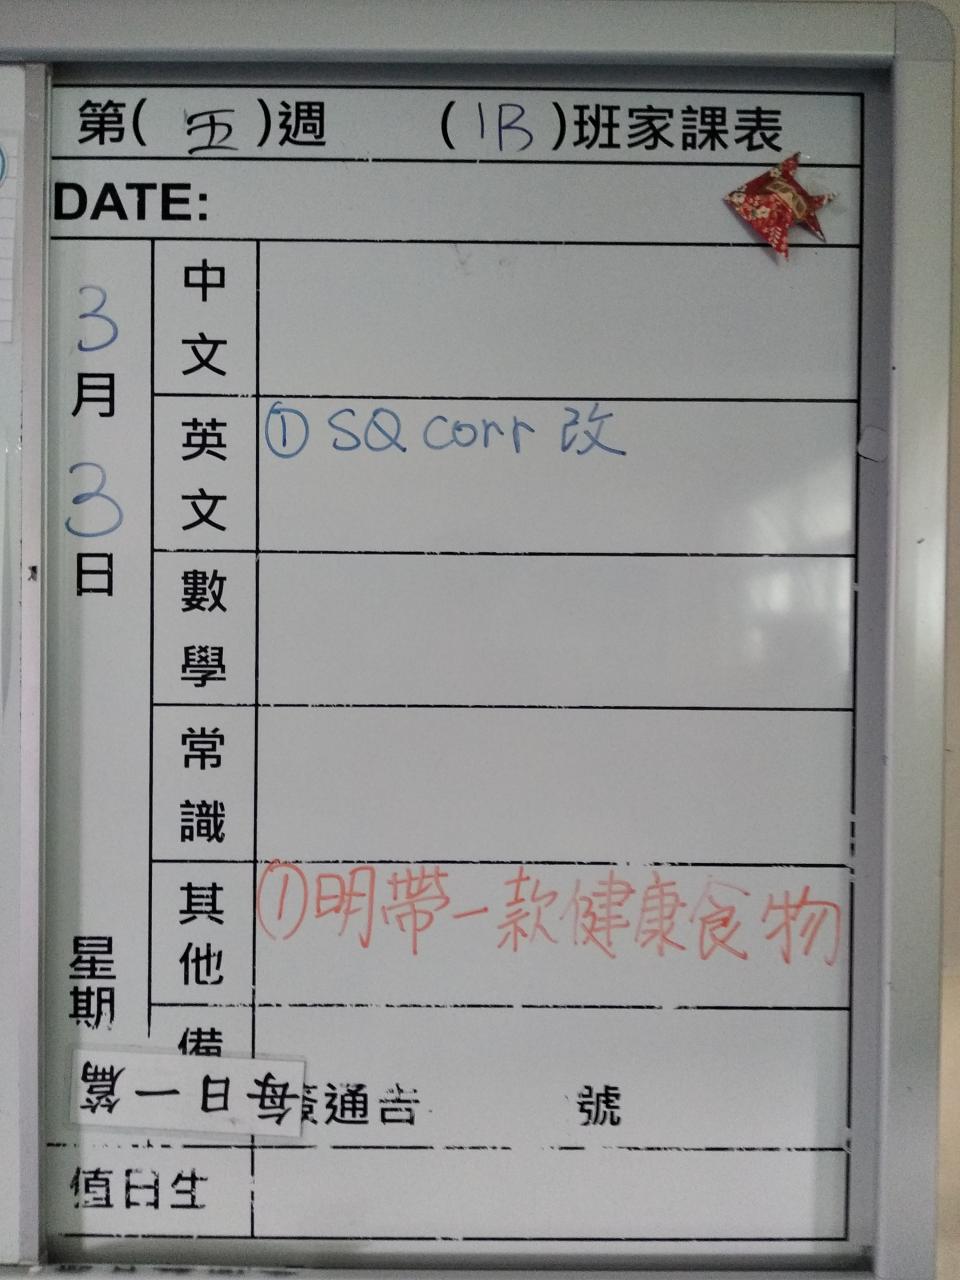 第(五)週 (1B)班家課表
DATE:
3月3日
星期
中文
英文 ① SQ corr 改
數學
常識
其他 ①明帶一款健康食物
備
簽通告 號
每日一篇
值日生